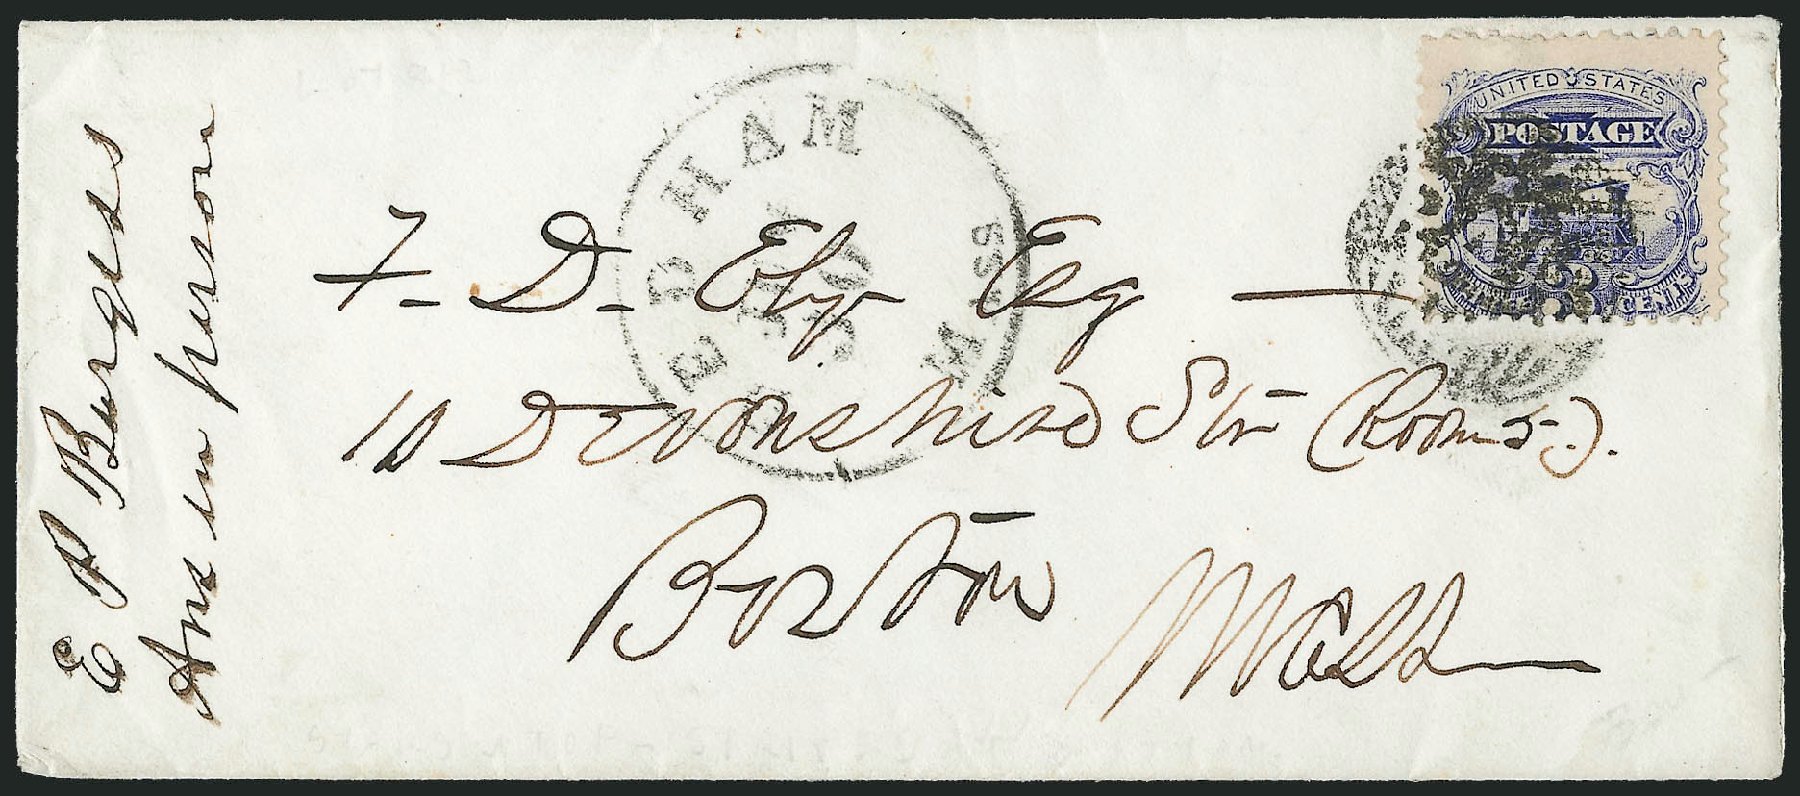 E P Burgess
Ans in person
DEDHAM MASS
UNITED STATES
POSTAGE
3 CENTS
F. D. Ely Esq —
10 Devonshire Str (Room 5.).
Boston Mass